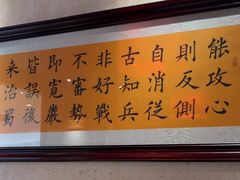 能攻心
則反側
自消從
古知兵
非好戰
不審勢
即寬嚴
皆誤後
来治蜀